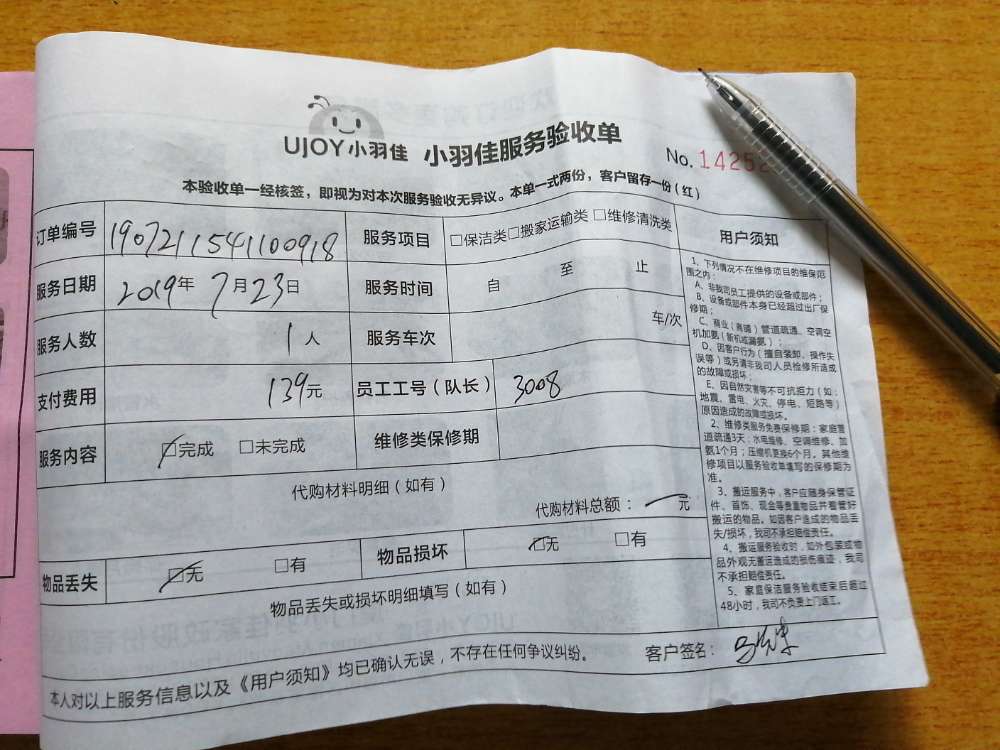 UJOY小羽佳 小羽佳服务验收单
No. 1425
本验收单一经核签，即视为对本次服务验收无异议。本单一式两份，客户留存一份(红)
订单编号 1907211541100918 服务项目 □保洁类□搬家运输类 □维修清洗类
服务日期 2019年 7月23日 服务时间 自 至 止
服务人数 1人 服务车次 车/次
支付费用 139元 员工工号(队长) 3008
服务内容 □完成 □未完成 维修类保修期
代购材料明细(如有)
代购材料总额： 元
物品丢失 □无 □有 物品损坏 □无 □有
物品丢失或损坏明细填写(如有)
本人对以上服务信息以及《用户须知》均已确认无误，不存在任何争议纠纷。 客户签名：
用户须知
1、下列情况不在维修项目的维保范
围之内：
A、非我司员工提供的设备或部件；
B、设备或部件本身已经超过出厂保
修期；
C、商业(商铺)管道疏通、空调空
机加氨(新机或漏氨)；
D、因客户行为(擅自装卸、操作失
误等)或另请非我司人员检修所造成
的故障或损坏；
E、因自然灾害等不可抗拒力(如：
地震、雷电、火灾、停电、短路等)
原因造成的故障或损坏。
2、维修类服务免费保修期：家庭管
道疏通3天；水电维修、空调维修、加
氨1个月；压缩机更换6个月。其他维
修项目以服务验收单填写的保修期为
准。
3、搬运服务中，客户应随身保管证
件、首饰、现金等贵重物品并看管好
搬运的物品。如因客户造成的物品丢
失/损坏，我司不承担赔偿责任。
4、搬运服务验收时，如外包装或物
品外观无搬运造成的损伤痕迹，我司
不承担赔偿责任。
5、家庭保洁服务验收结束后超过
48小时，我司不负责上门返工。